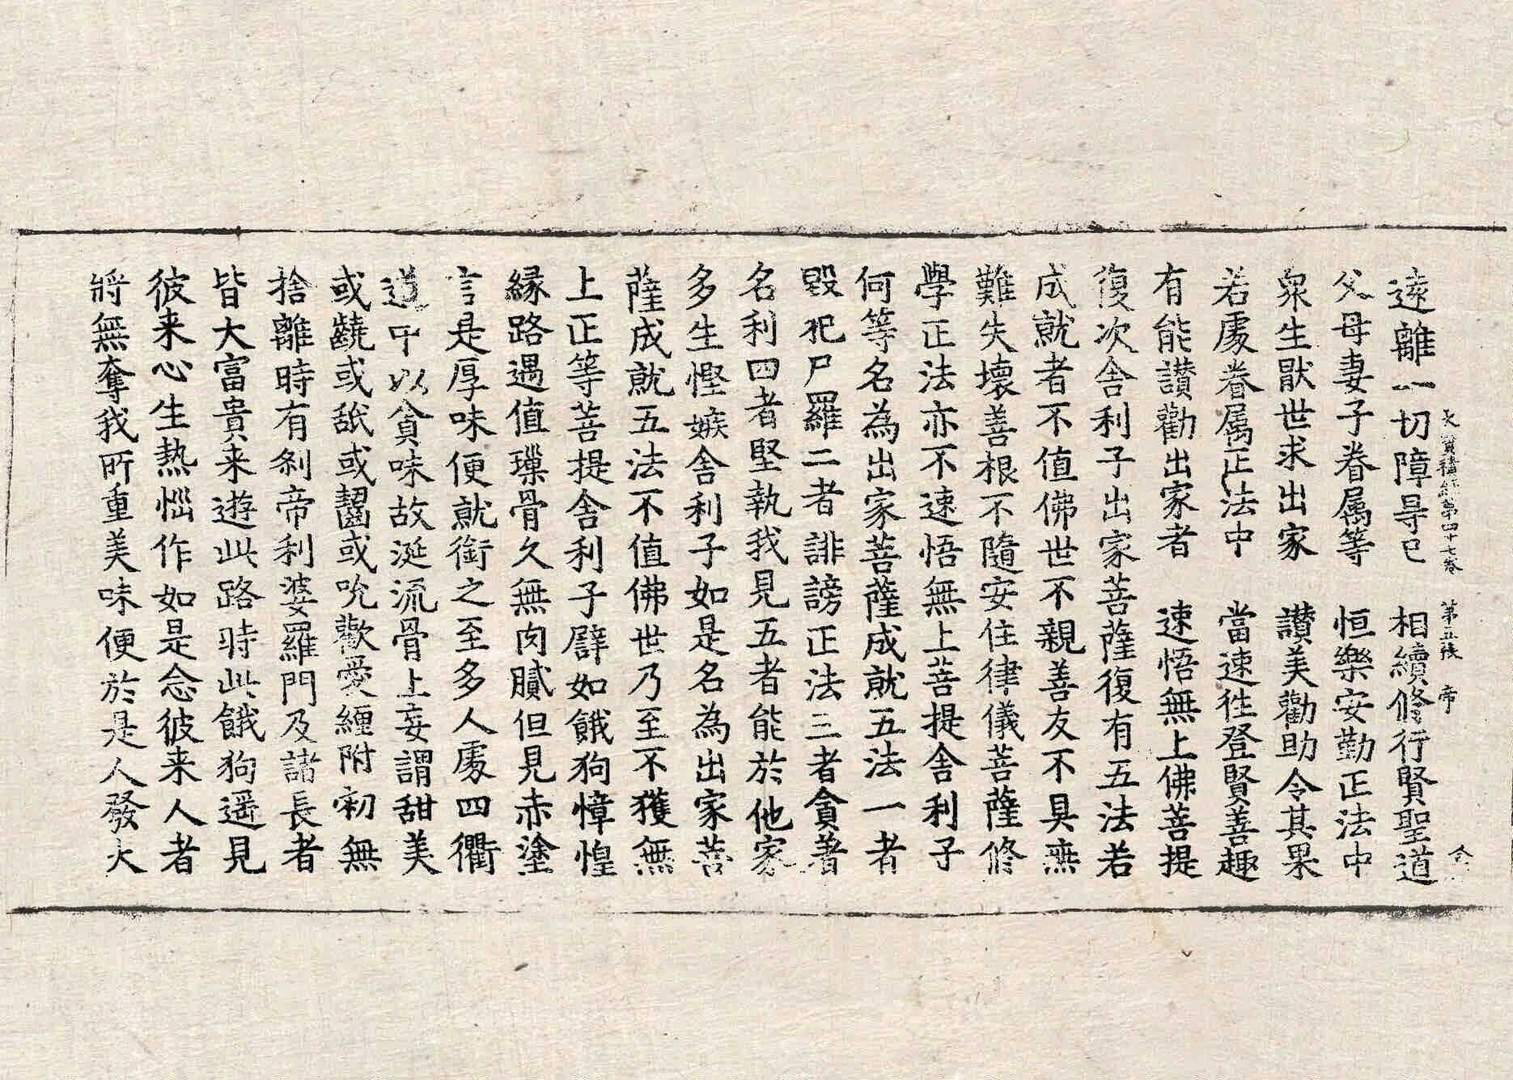 大寳積經第四十七卷 第五張 帝
遠離一切障㝵已 相續修行賢聖道
父母妻子眷属等 恒樂安勤正法中
衆生猒世求出家 讃美勸助令其果
若處眷属正法中 當速往登賢善趣
有能讃勸出家者 速悟無上佛菩提
復次舍利子出家菩薩復有五法若
成就者不值佛世不親善友不具無
難失壞善根不隨安住律儀菩薩修
學正法亦不速悟無上菩提舍利子
何等名為出家菩薩成就五法一者
毀犯尸羅二者誹謗正法三者貪著
名利四者堅執我見五者能於他家
多生慳嫉舍利子如是名為出家菩
薩成就五法不值佛世乃至不獲無
上正等菩提舍利子譬如餓狗慞惶
縁路遇值璅骨久無肉膩但見赤塗
言是厚味便就銜之至多人處四衢
道中以貪味故涎流骨上妄謂甜美
或齩或舐或齧或吮歡愛纏附初無
捨離時有剎帝利婆羅門及諸長者
皆大富貴来遊此路時此餓狗遥見
彼来心生热惱作如是念彼来人者
將無奪我所重美味便於是人發大